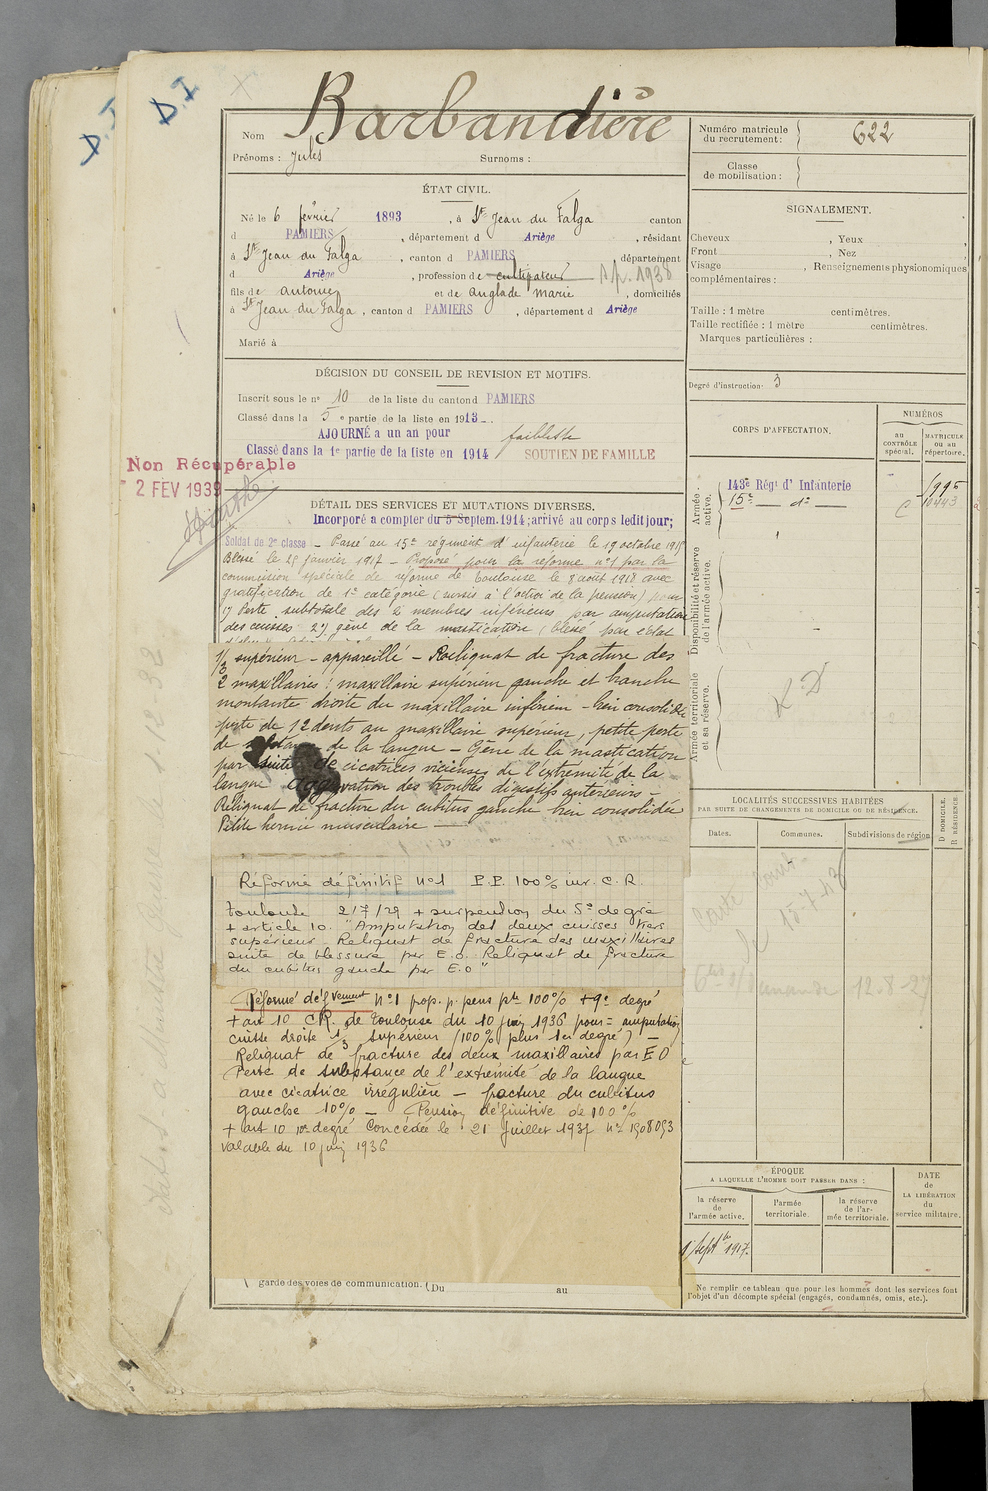 D.I
D.I
Nom Barbandière
Prénoms : Jules Surnoms :
Numéro matricule du recrutement : 622
Classe de mobilisation :
ÉTAT CIVIL.
Né le 6 février 1893, à St Jean du Falga canton
d PAMIERS, département d Ariège, résidant
à St Jean du Falga, canton d PAMIERS, département
d Ariège, profession de cultivateur
fils de antoine et de anglade marie, domiciliés
à St Jean du Falga, canton d PAMIERS, département d Ariège
Marié à
SIGNALEMENT.
Cheveux , Yeux ,
Front , Nez
Visage , Renseignements physionomiques
complémentaires :
Taille : 1 mètre centimètres.
Taille rectifiée : 1 mètre centimètres.
Marques particulières :
Degré d'instruction. 3
DÉCISION DU CONSEIL DE REVISION ET MOTIFS.
Inscrit sous le n° 10 de la liste du canton d PAMIERS
Classé dans la 5e partie de la liste en 1913.
AJOURNÉ a un an pour faiblesse
Classé dans la 1e partie de la liste en 1914 SOUTIEN DE FAMILLE
Non Récupérable
2 FEV 1939
DÉTAIL DES SERVICES ET MUTATIONS DIVERSES.
Incorporé a compter du 5 Septem. 1914; arrivé au corps ledit jour;
Soldat de 2e classe – Passé au 15e régiment d'infanterie le 19 octobre 1915
Blessé le 25 janvier 1917 – Proposé pour la réforme n°1 par la
commission spéciale de réforme de toulouse le 8 aout 1918 avec
gratification de 1e catégorie (sursis à l'octroi de la pension) pour
1) Perte subtotale des 2 membres inférieurs par amputation
des cuisses 2) gêne de la mastication (blessé par éclat
1/3 supérieur – appareillé – Reliquat de fracture des
2 maxillaires : maxillaire supérieur gauche et branche
montante droite du maxillaire inférieur – bien consolidée
perte de 12 dents au maxillaire supérieur, petite perte
de substance de la langue – Gêne de la mastication
par suite de cicatrices vicieuses de l'extremité de la
langue aggravation des troubles digestifs antérieurs –
Reliquat de fracture du cubitus gauche bien consolidée
Petite hernie musculaire
Réformé définitif n°1 P.P. 100% inv. C.R.
Toulouse 2/7/29 + surpension du 5e degré
+ article 10. "Amputation des deux cuisses tiers
supérieur Reliquat de fracture des maxillaires
suite de blessure par E.O. Reliquat de fracture
du cubitus gauche par E.O"
Réformé défvement n°1 prop. p. pens pte 100% + 9e degré
+ art 10 CR. de Toulouse du 10 juin 1936 pour = amputation
cuisse droite 1/3 supérieur (100% plus 1er degré) –
Reliquat de fracture des deux maxillaires par E O
Perte de substance de l'extremité de la langue
avec cicatrice irrégulière – fracture du cubitus
gauche 10% – Pension définitive de 100%
+ art 10 10e degré Concédée le 21 Juillet 1937 n° 1908093
valable du 10 juin 1936
garde des voies de communication. (Du au
CORPS D'AFFECTATION.
NUMÉROS
au CONTRÔLE spécial.
MATRICULE ou au répertoire.
Armée active.
143e Régt d'Infanterie
15e — do —
C 10443
Disponibilité et réserve de l'armée active.
Armée territoriale et sa réserve.
LOCALITÉS SUCCESSIVES HABITÉES
PAR SUITE DE CHANGEMENTS DE DOMICILE OU DE RÉSIDENCE.
Dates. Communes. Subdivisions de région
D DOMICILE.
R RÉSIDENCE
12-8-27
ÉPOQUE
A LAQUELLE L'HOMME DOIT PASSER DANS :
la réserve de l'armée active.
l'armée territoriale.
la réserve de l'armée territoriale.
DATE de LA LIBÉRATION du service militaire.
1 Septbre 1917.
Ne remplir ce tableau que pour les hommes dont les services font
l'objet d'un décompte spécial (engagés, condamnés, omis, etc.).